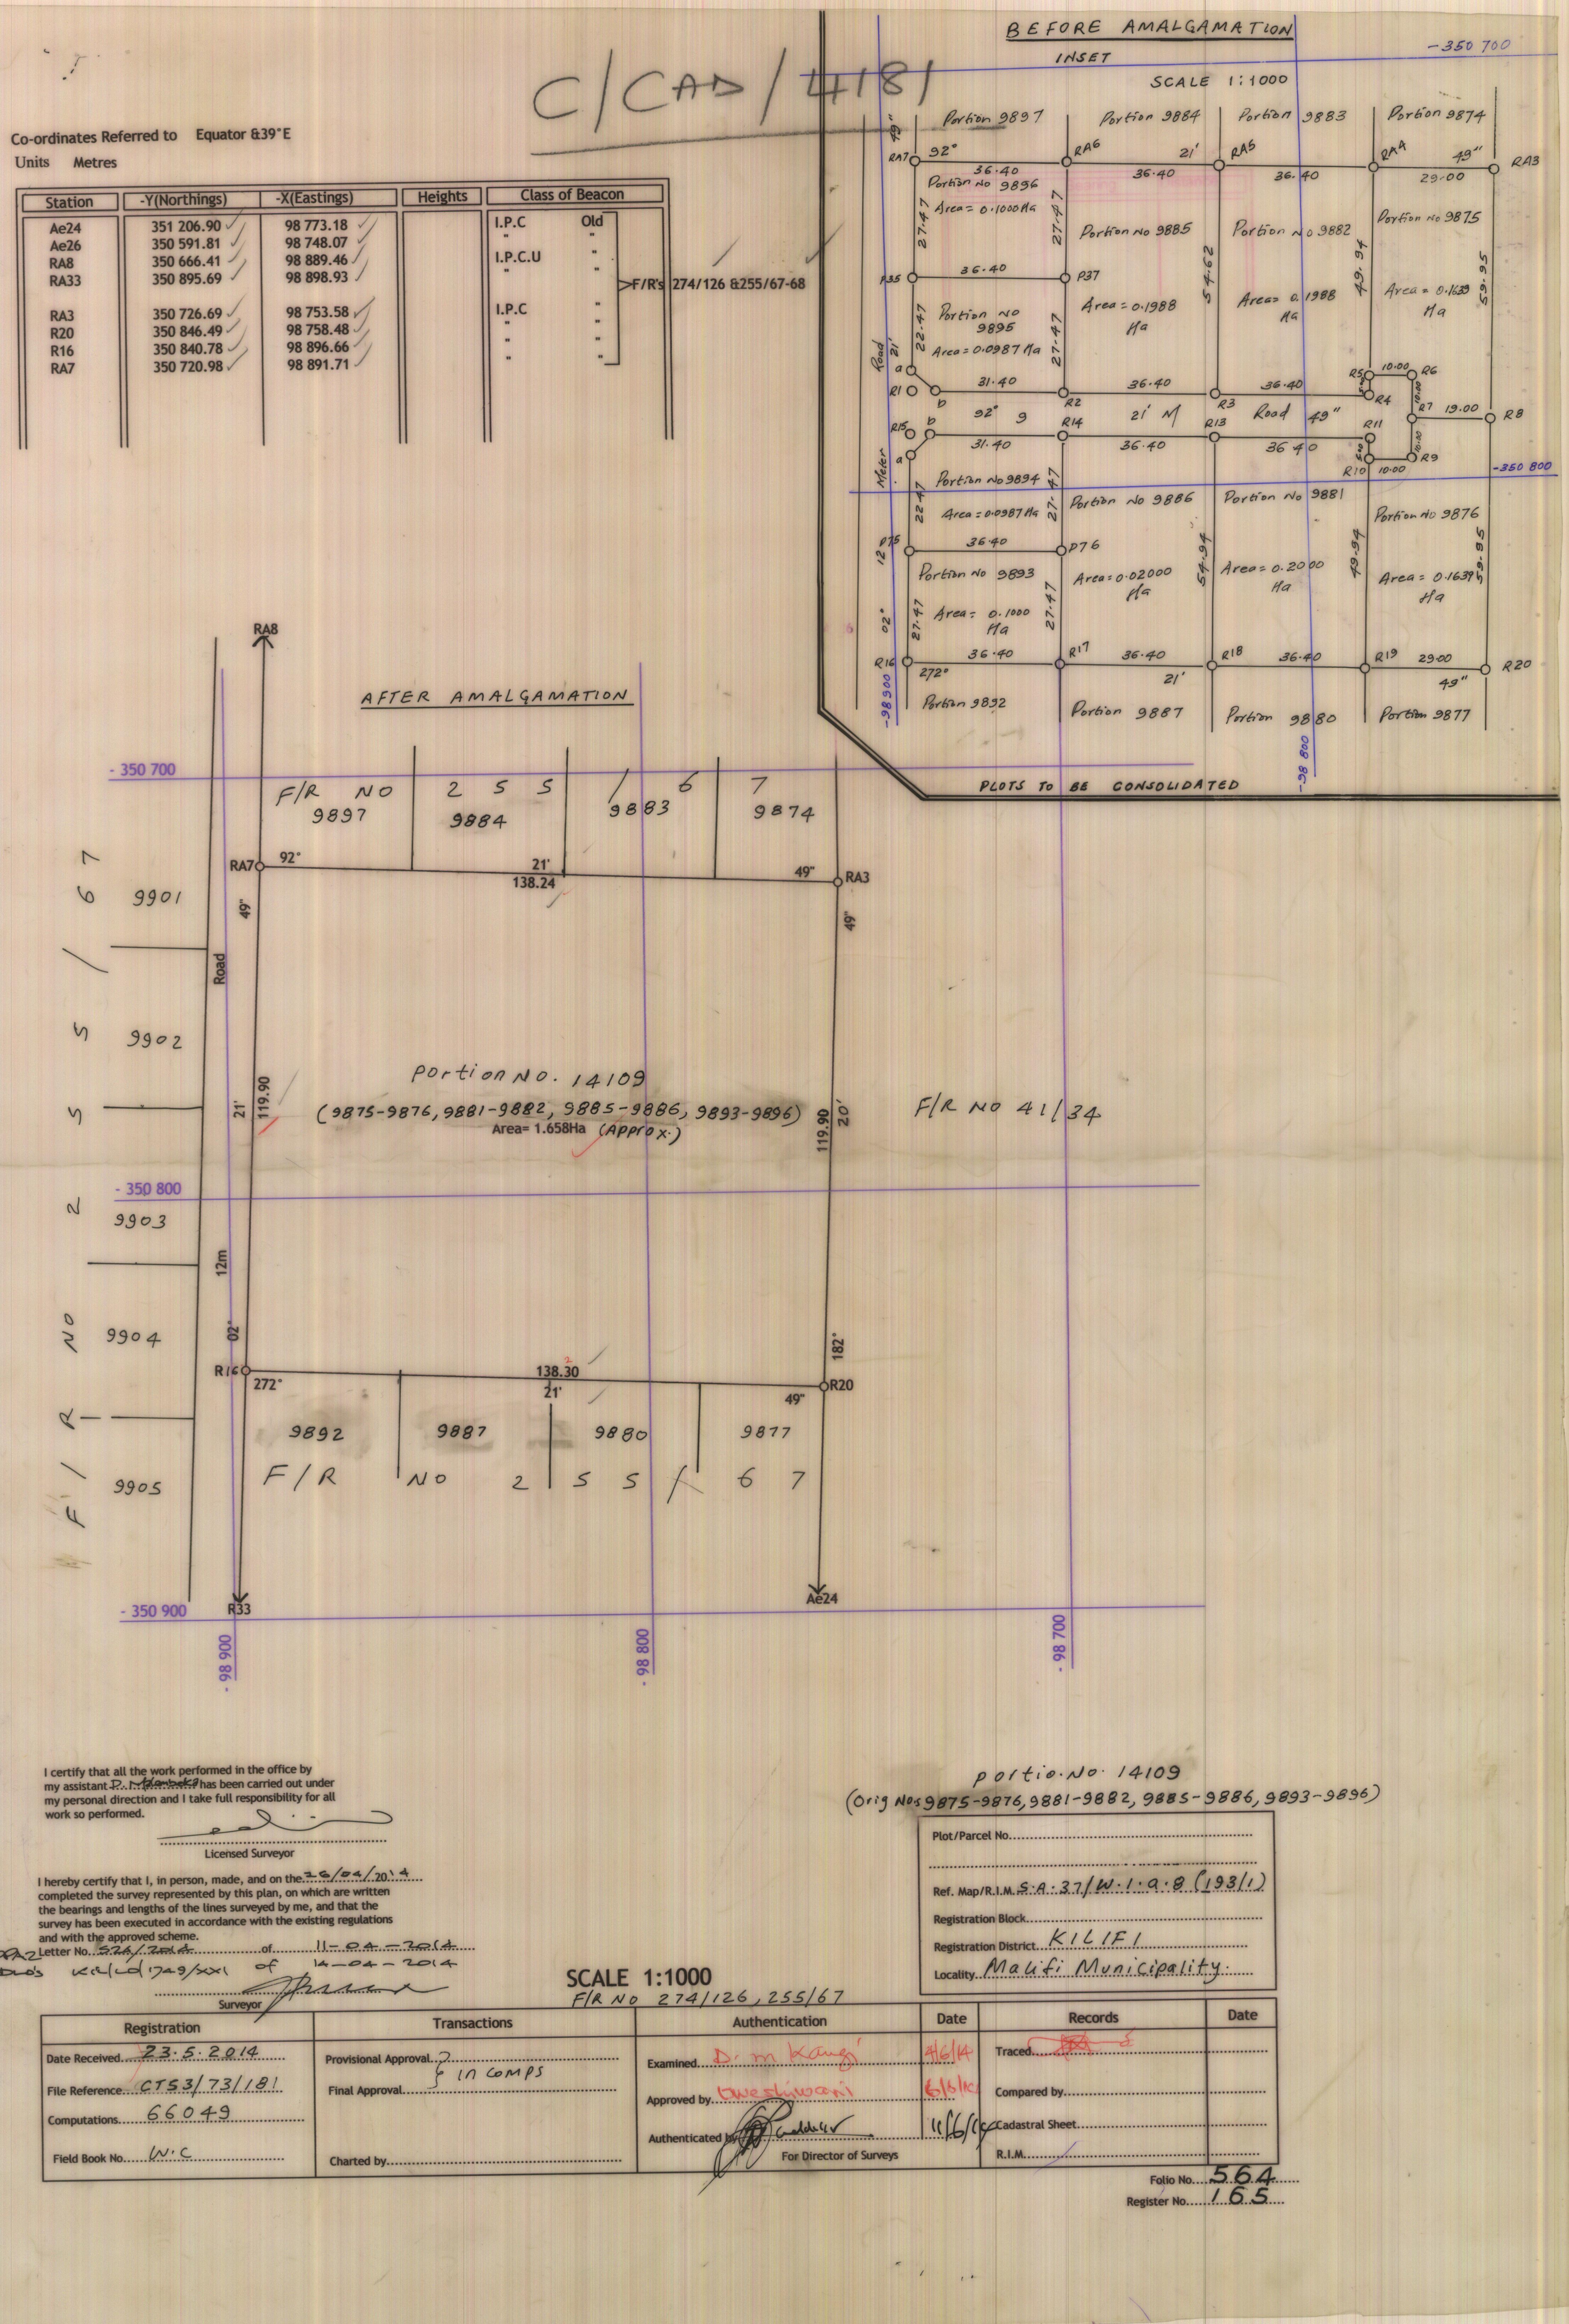 C/CAD/4181
Co-ordinates Referred to Equator &39°E
Units Metres
Station -Y(Northings) -X(Eastings) Heights Class of Beacon
Ae24 351 206.90 98 773.18 I.P.C Old
Ae26 350 591.81 98 748.07 " "
RA8 350 666.41 98 889.46 I.P.C.U "
RA33 350 895.69 98 898.93 " "
F/R's 274/126 &255/67-68
RA3 350 726.69 98 753.58 I.P.C "
R20 350 846.49 98 758.48 " "
R16 350 840.78 98 896.66 " "
RA7 350 720.98 98 891.71 " "
BEFORE AMALGAMATION
INSET
SCALE 1:1000
-350 700
Portion 9897 Portion 9884 Portion 9883 Portion 9874
49" RA7 92° RA6 21' RA5 RA4 49" RA3
36.40 36.40 36.40 29.00
Portion No 9896
Area= 0.1000Ha
27.47 27.47
Portion No 9885 Portion No 9882 Portion No 9875
54.62 49.94 59.95
36.40 P37
Area=0.1988 Ha
Area= 0.1988 Ha
Area= 0.1639 Ha
Portion No 9895
Area=0.0987 Ha
22.47 27.47
Road 21'
a R1 b 31.40 R2 36.40 R3 36.40 R4 R5 10.00 R6
92° 9 21' M Road 49" R7 19.00 R8
R15 b R14 R13 R11
a 31.40 36.40 36.40 R10 10.00 R9
Meter
-350 800
Portion No 9894 Portion No 9886 Portion No 9881 Portion No 9876
Area=0.0987Ha
22.47 27.47
P75 36.40 P76
12
Portion No 9893
Area= 0.1000 Ha
27.47 27.47
Area=0.02000 Ha
54.94
Area=0.2000 Ha
49.94
Area= 0.1639 Ha
59.95
02°
R16 36.40 R17 36.40 R18 36.40 R19 29.00 R20
272° 21' 49"
Portion 9892 Portion 9887 Portion 9880 Portion 9877
-98900
-98 800
PLOTS TO BE CONSOLIDATED
RA8
AFTER AMALGAMATION
- 350 700
F/R NO 2 5 5 / 6 7
9897 9884 9883 9874
RA7 92° 21' 49" RA3
138.24
49" 49"
F/R NO 255/67
9901
Road
9902
Portion NO. 14109
(9875-9876, 9881-9882, 9885-9886, 9893-9896)
Area= 1.658Ha (Approx.)
21' 119.90
119.90 20'
F/R NO 41/34
- 350 800
9903
12m
9904
02° 182°
R16 138.30 R20
2
272° 21' 49"
9892 9887 9880 9877
F/R NO 2 5 5 / 6 7
9905
R33 Ae24
- 350 900
- 98 900
- 98 800
- 98 700
I certify that all the work performed in the office by
my assistant has been carried out under
my personal direction and I take full responsibility for all
work so performed.
Licensed Surveyor
I hereby certify that I, in person, made, and on the 26/04/2014
completed the survey represented by this plan, on which are written
the bearings and lengths of the lines surveyed by me, and that the
survey has been executed in accordance with the existing regulations
and with the approved scheme.
Letter No. 526/2014 of 11-04-2014
of 14-04-2014
Surveyor
SCALE 1:1000
F/R NO 274/126, 255/67
Portio.No. 14109
(Orig Nos 9875-9876, 9881-9882, 9885-9886, 9893-9896)
Plot/Parcel No.
Ref. Map/R.I.M. S.A.37/W.1.a.8 (193/1)
Registration Block
Registration District KILIFI
Locality Malifi Municipality.
Registration Transactions Authentication Date Records Date
Date Received 23.5.2014 Provisional Approval Examined D. m Kangi 4/6/14 Traced
File Reference CT53/73/181 Final Approval } in comps Approved by Compared by
Computations 66049 Authenticated by 11/6/14 Cadastral Sheet
Field Book No. W.C Charted by For Director of Surveys R.I.M.
Folio No. 564
Register No. 165